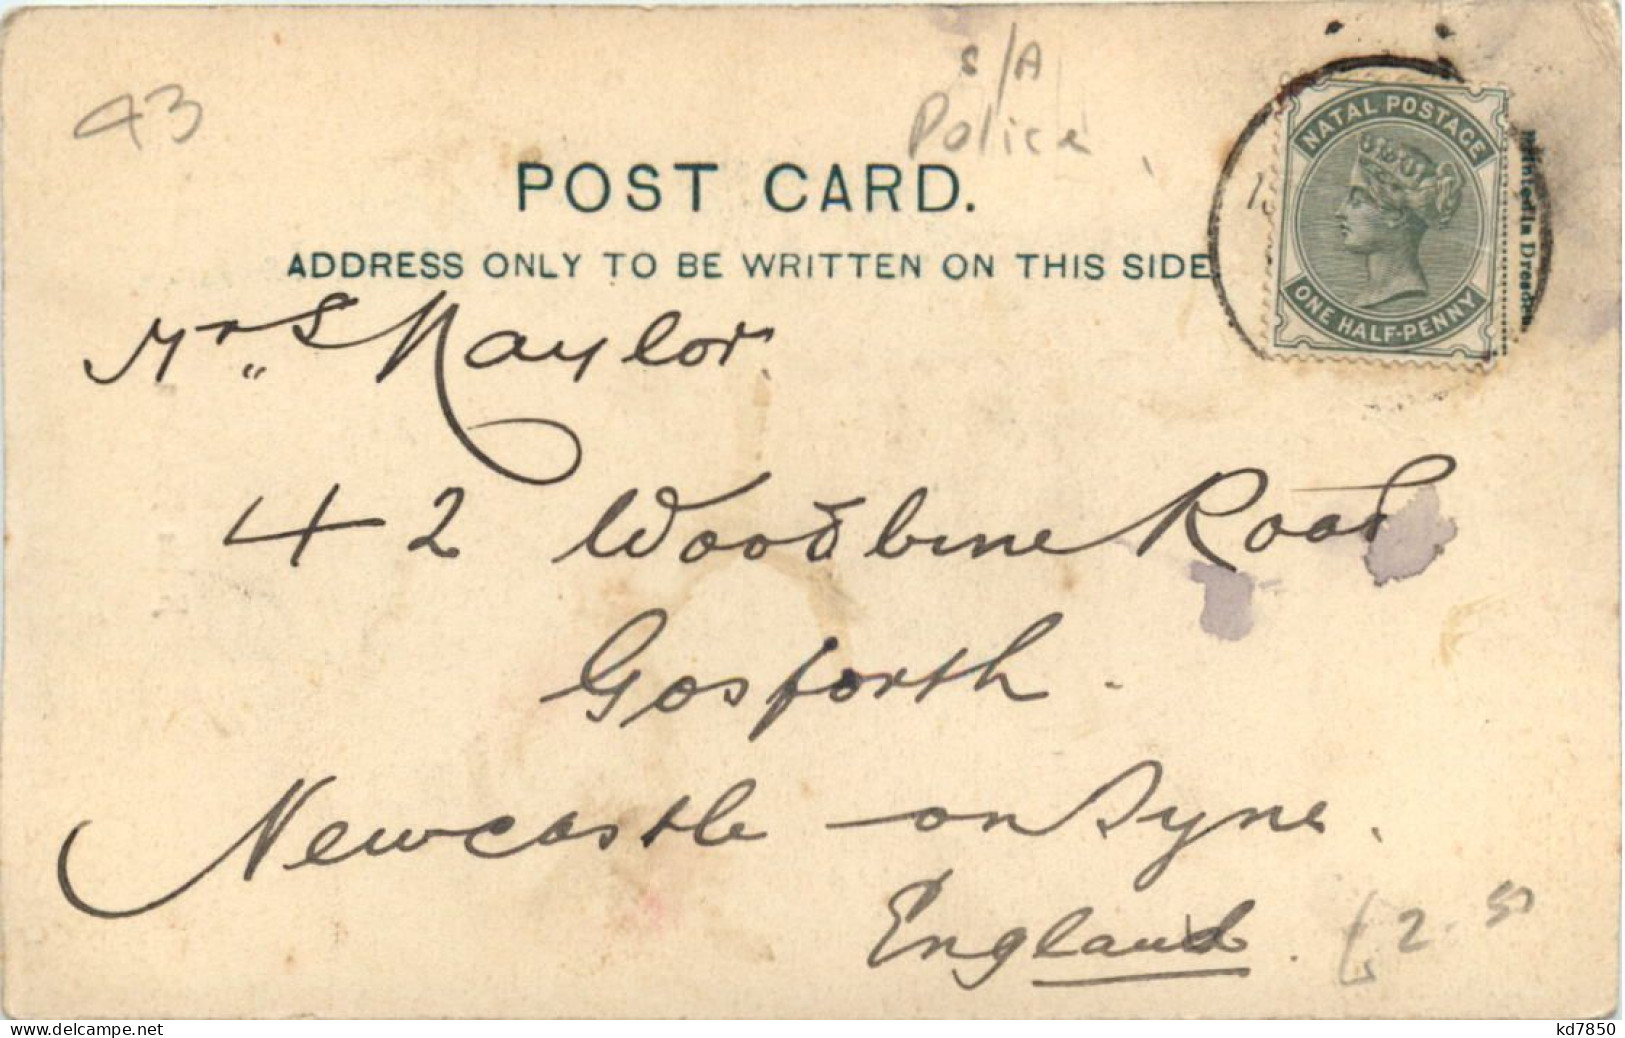 43
S/A
Police
POST CARD.
ADDRESS ONLY TO BE WRITTEN ON THIS SIDE
NATAL POSTAGE
ONE HALF-PENNY
Printed in Dresden.
Mr S Naylor
42 Woodbine Road
Gosforth.
Newcastle on Tyne.
England.
www.delcampe.net
kd7850